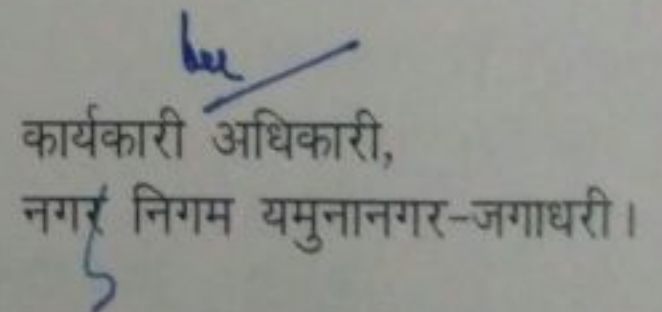 कार्यकारी अधिकारी,
नगर निगम यमुनानगर-जगाधरी।